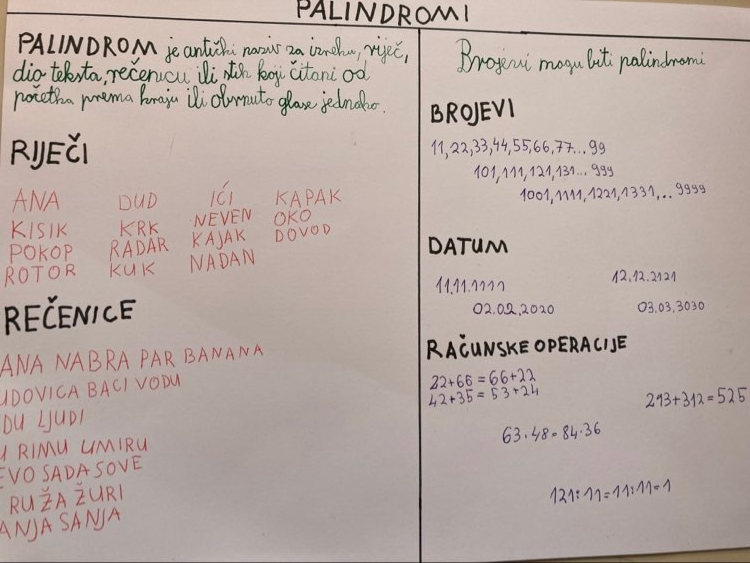 PALINDROMI
PALINDROM je antički naziv za izreku, riječ,
dio teksta, rečenicu ili stih koji čitani od
početka prema kraju ili obrnuto glase jednako.
RIJEČI
ANA DUD IĆI KAPAK
KISIK KRK NEVEN OKO
POKOP RADAR KAJAK DOVOD
ROTOR KUK NADAN
REČENICE
ANA NABRA PAR BANANA
UDOVICA BACI VODU
IDU LJUDI
U RIMU UMIRU
EVO SADA SOVE
RUŽA ŽURI
ANJA SANJA
Brojevi mogu biti palindromi
BROJEVI
11,22,33,44,55,66,77...99
101,111,121,131...999
1001,1111,1221,1331,...9999
DATUM
11.11.1111 12.12.2121
02.02.2020 03.03.3030
RAČUNSKE OPERACIJE
22+66=66+22
42+35=53+24
213+312=525
63·48=84·36
121:11=11:11=1